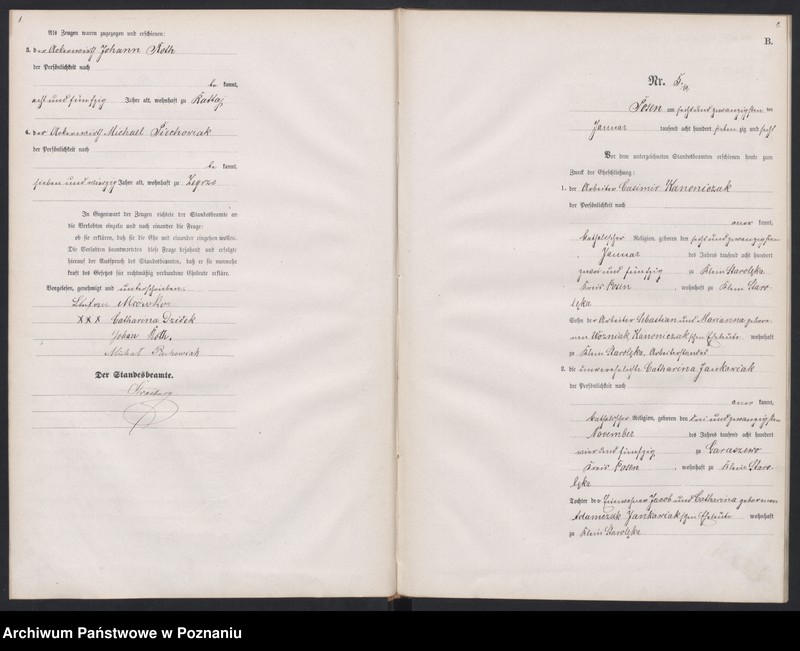 1
Als Zeugen waren zugezogen und erschienen:
3. der Ackerwirth Johann Roth
der Persönlichkeit nach
be kannt,
acht und fünfzig Jahre alt, wohnhaft zu Rattaj
4. der Ackerwirth Michael Piechowiak
der Persönlichkeit nach
be kannt,
sieben und vierzig Jahre alt, wohnhaft zu Zegrze
In Gegenwart der Zeugen richtete der Standesbeamte an
die Verlobten einzeln und nach einander die Frage:
ob sie erklären, daß sie die Ehe mit einander eingehen wollen.
Die Verlobten beantworteten diese Frage bejahend und erfolgte
hierauf der Ausspruch des Standesbeamten, daß er sie nunmehr
kraft des Gesetzes für rechtmäßig verbundene Eheleute erkläre.
Vorgelesen, genehmigt und unterschrieben
Mrówka
XXX Catharina Dziśek
Johan Roth.
Michał Piechowiak
Der Standesbeamte.
B.
Nr. 5.
Posen am sechs und zwanzigsten ten
Januar tausend acht hundert sieben zig und sechs
Vor dem unterzeichneten Standesbeamten erschienen heute zum
Zweck der Eheschließung:
1. der Arbeiter Casimir Kanoniczak
der Persönlichkeit nach
kannt,
katholischer Religion, geboren den sechs und zwanzigsten
Januar des Jahres tausend acht hundert
zwei und fünfzig zu Klein Starolęka
Kreis Posen, wohnhaft zu Klein Staro-
lęka
Sohn der Arbeiter Sebastian und Marianna gebore-
nen Woźniak Kanoniczak'schen Eheleute wohnhaft
zu Klein Starolęka, Arbeiterstandes
2. die unverehelichte Catharina Jankowiak
der Persönlichkeit nach
kannt,
katholischer Religion, geboren den drei und zwanzigsten
November des Jahres tausend acht hundert
vier und fünfzig zu Garaszewo
Kreis Posen, wohnhaft zu Klein Staro-
lęka
Tochter der Jacob und Catharina geborenen
Adamczak Jankowiak'schen Eheleute wohnhaft
zu Klein Starolęka
Archiwum Państwowe w Poznaniu